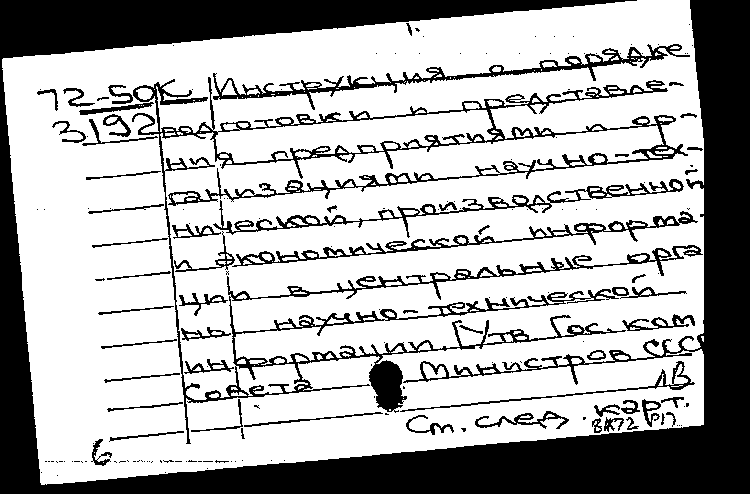 1.
72-50К Инструкция о порядке
3192 подготовки и представле-
ния предприятиями и ор-
ганизациями научно-тех-
нической, производственной
и экономической информа-
ции в центральные орга
ны научно-технической
информации. [Утв Гос. ком.
Совета Министров СССР
1В
См. след. карт.
6